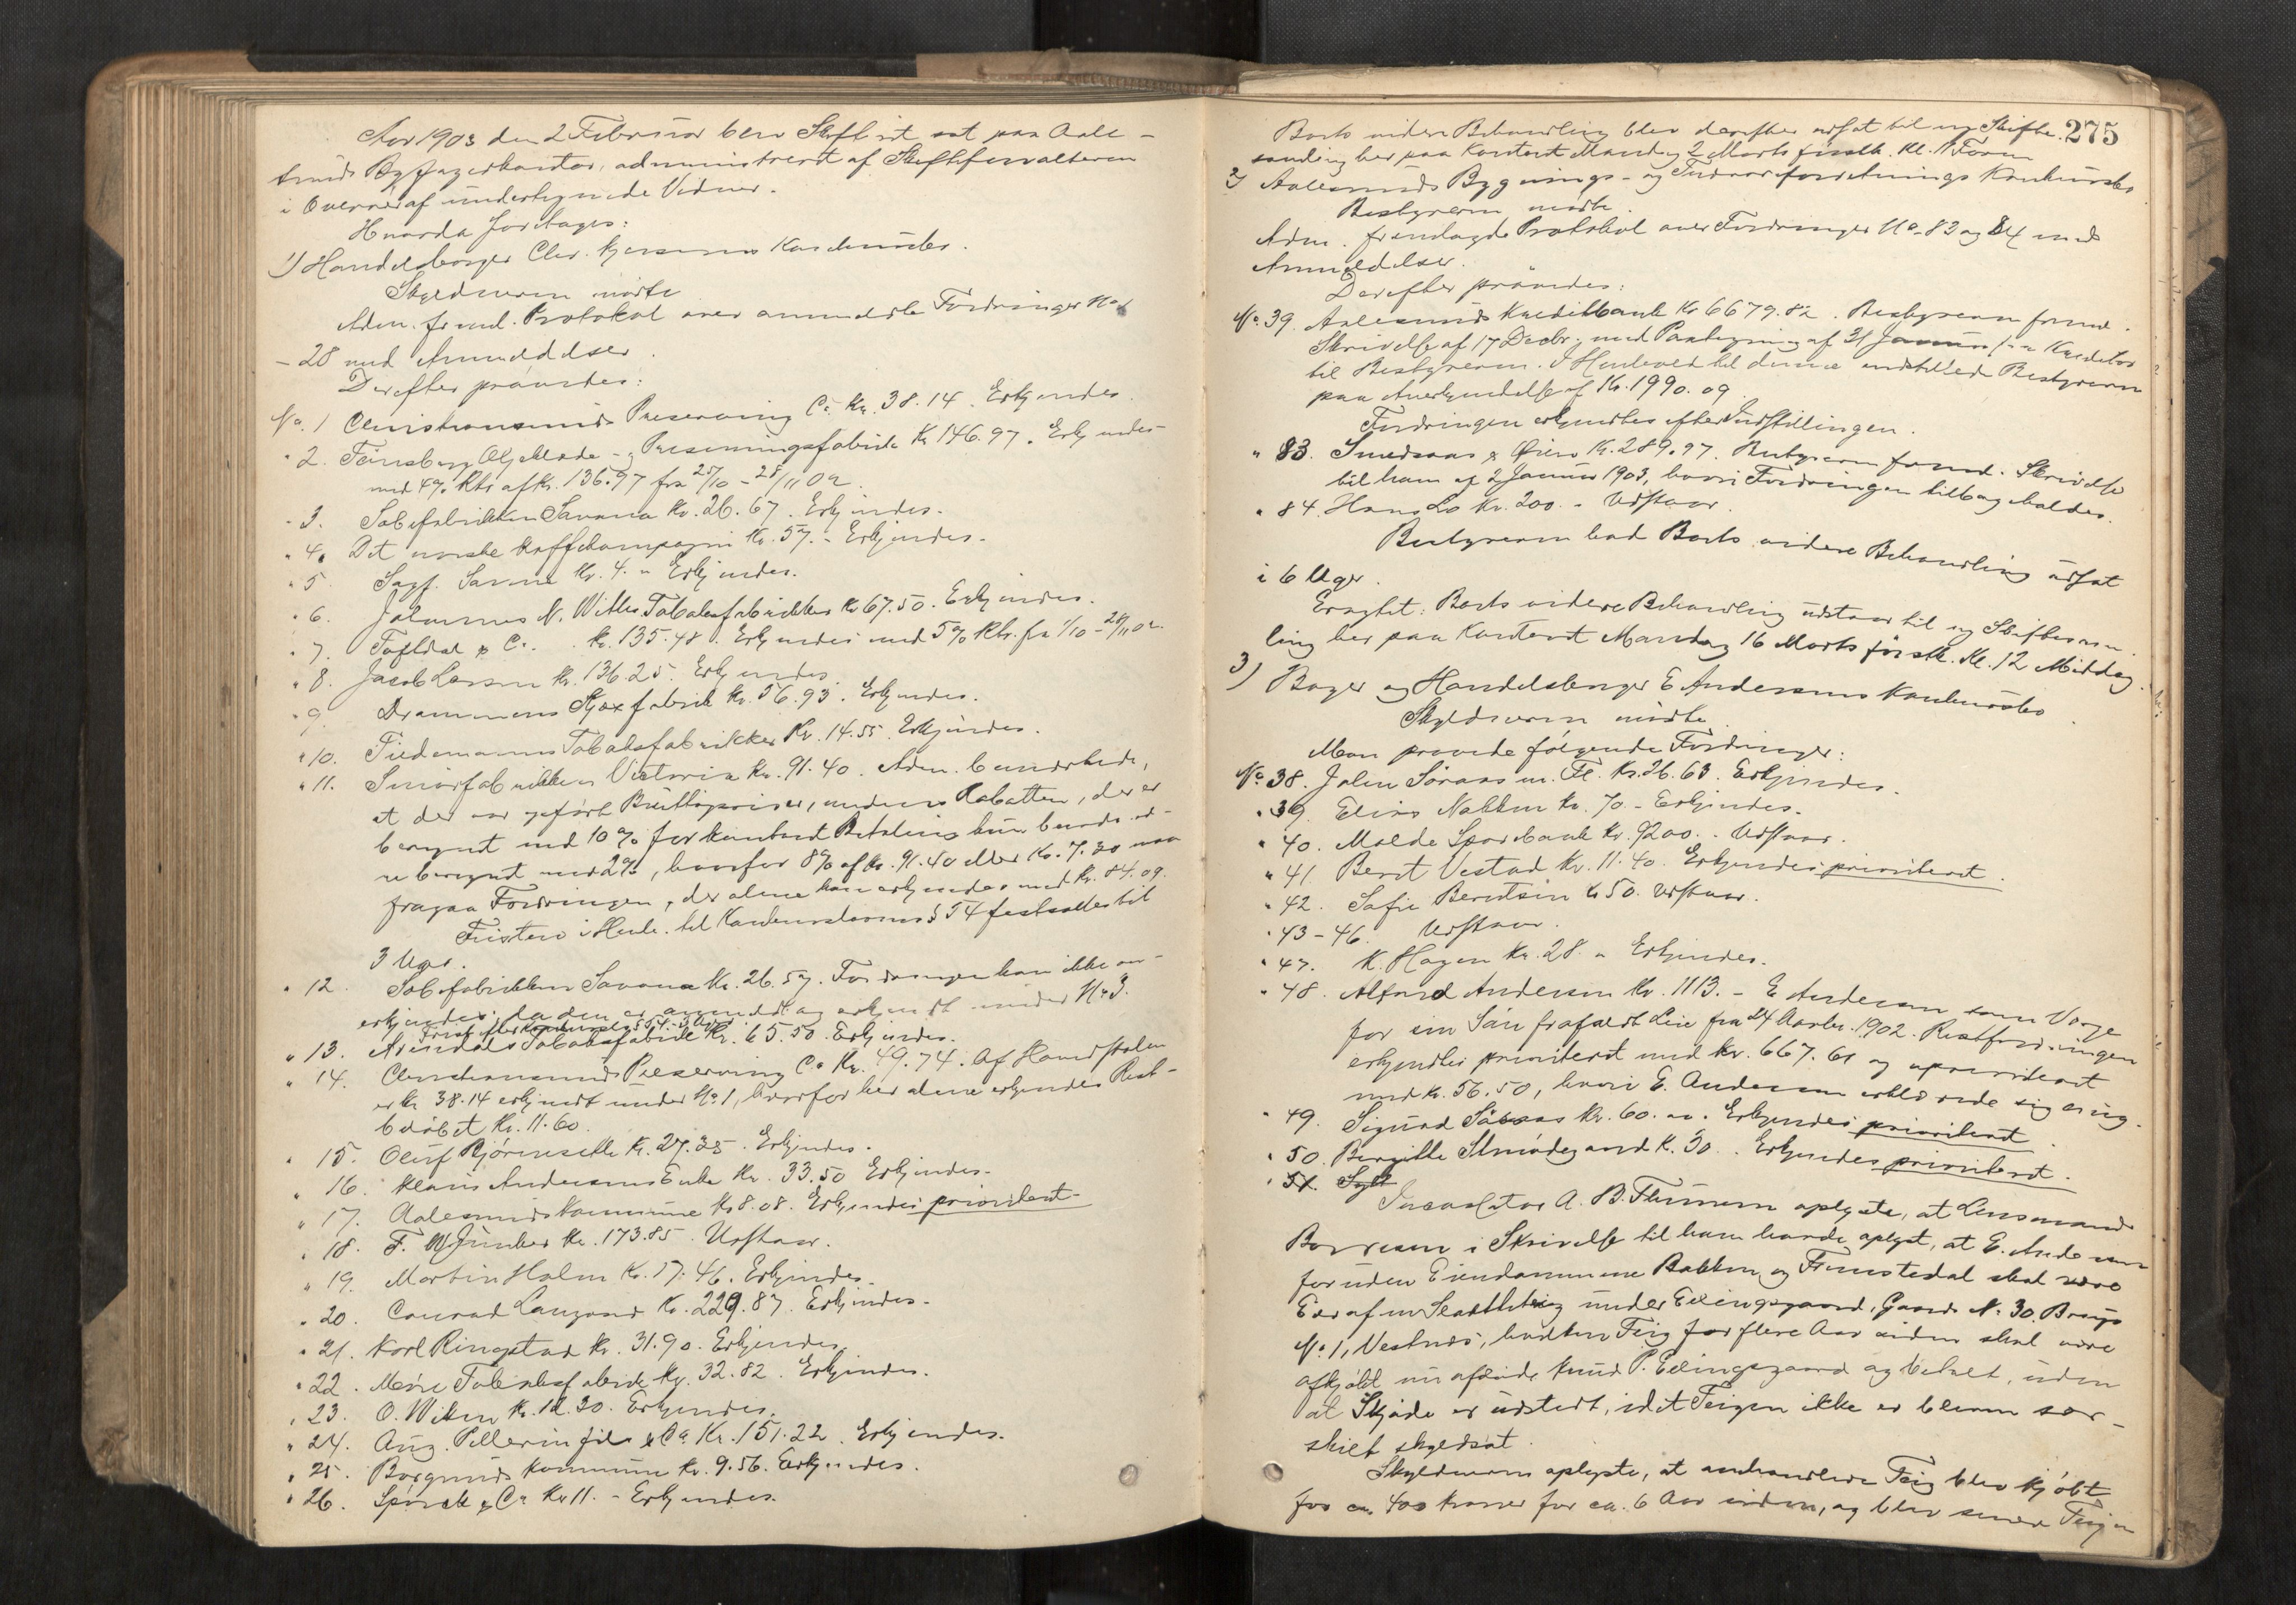 Aar 1903 den 2 Februar blev Skifteret sat paa Aale-
sunds Byfogedkontor, administreret af Skifteforvalteren
i Overvær af undertegnede Vidner.
Hvorda foretages:
1) Handelsborger Chr. Konkursbo.
Skyldneren mødte
Adm. freml. Protokol over anmeldte Fordringer No 1
- 28 med Anmeldelser.
Derefter prøvedes:
No. 1 Christianssunds Preserving Co. Kr. 38.14. Erkjendes.
" 2. Tønsberg Oljeklæde- og Presenningsfabrik Kr 146.97. Erkjendes
med 4% Rtr af Kr. 136.97 fra 25/10 - 28/11 02.
" 3. Sæbefabrikken Savona Kr. 26.67. Erkjendes.
" 4. Det norske Kaffekompagni Kr. 57.- Erkjendes.
" 5 Sagf. Kr. 4. " Erkjendes.
" 6. Johannes N. Wittes Tobaksfabrikker Kr 67.50. Erkjendes.
" 7. Toftdal & Co. Kr. 135.48. Erkjendes med 5% Rtr. fra 1/10 - 28/11 02.
" 8. Jacob Larsen Kr. 136.25. Erkjendes
" 9. Drammens Skofabrik Kr. 56.93. Erkjendes.
" 10. Tiedemanns Tobaksfabrikker Kr. 14.55. Erkjendes.
" 11. Smørfabrikken Victoria Kr. 91.40. Adm. bemærkede,
at der var opført Bruttopriser, medens Rabatten, der er
beregnet med 10% for kontant Betaling kun burde væ-
re beregnet med 2%, hvorfor 8% af Kr. 91.40 eller Kr. 7.30 maa
fragaa Fordringen, der alene kan erkjendes med Kr. 84.09.
Fristen i Henh. til Konkurslovens § 54 fastsattes til
3 Uger.
" 12. Sæbefabrikken Savona Kr. 26.57. Fordringen kan ikke an-
erkjendes, da den er anmeldt og erkjendt under No 3.
Frist efter Konkursl. § 54 - 3 Uger
" 13. Arendals Tobaksfabrik Kr. 65.50. Erkjendes.
" 14. Christianssunds Preserving Co Kr. 49.74. Af Hovedstolen
er Kr 38.14 erkjendt under No 1, hvorfor her alene erkjendes Rest-
beløbet Kr. 11.60.
" 15. Oluf Kr. 27.35. Erkjendes.
" 16. Klaus Andersens Enke Kr. 33.50 Erkjendes.
" 17. Aalesunds Kommune Kr 8.08. Erkjendes prioriteret
" 18. F. W Junker Kr. 173.85. Udstaar.
" 19. Martin Holm Kr. 17.46. Erkjendes.
" 20. Conrad Langaard Kr. 229.87. Erkjendes.
" 21. Karl Ringstad Kr. 31.90. Erkjendes
" 22. Møre Tobaksfabrik Kr. 32.82. Erkjendes.
" 23. O. Wiken Kr. 12.30. Erkjendes.
" 24. Aug. Pellerin fils & Co Kr. 151.22. Erkjendes.
" 25. Borgunds Kommune Kr. 9.56. Erkjendes.
" 26. & Co Kr 11. - Erkjendes.
Boets videre Behandling blev derefter udsat til ny Skifte- 275
samling her paa Kontoret Mandag 2 Marts førstk. Kl. 11 Form
2) Aalesunds Bygnings- og Konkursbo
Bestyreren mødte.
Adm. fremlagde Protokol over Fordringer No 83 og 84 med
Anmeldelser.
Derefter prøvedes:
No. 39. Aalesunds Kreditbank Kr 6679.82. Bestyreren freml.
Skrivelse af 17 Decbr. med Paategning af 31 Januar fra Kreditor
til Bestyreren. I Henhold til denne indstilled Bestyreren
paa Anerkjendelse af Kr. 1990.09
Fordringen erkjendtes efter Indstillingen.
" 83. & Øien Kr. 289.97. Bestyreren freml. Skrivelse
til ham af 2 Januar 1903, hvori Fordringen tilbageholdes.
" 84. Hans Lo Kr. 200. - Udstaar.
Bestyreren bad Boets videre Behandling udsat
i 6 Uger.
Eragtet: Boets videre Behandling udstaar til ny Skiftesam-
ling her paa Kontoret Mandag 16 Marts førstk. Kl. 12 Middag.
3) Bager og Handelsborger E Andersens Konkursbo.
Skyldneren mødte
Man prøvede følgende Fordringer:
No. 38. John m. Fl. Kr. 26.63. Erkjendes.
" 39. Elias Nakken Kr. 70 - Erkjendes.
" 40. Molde Sparebank Kr. 9200. - Udstaar.
" 41. Bernt Vestad Kr. 11.40. Erkjendes prioriteret.
" 42. Sofie Berntsen Kr 50. Udstaar.
" 43-46. Udstaar.
" 47. K. Hagen Kr. 28. " Erkjendes.
" 48. Alfred Andersen Kr. 1113. - E Andersen som Værge
for sin Søn frafaldt Leie fra 24 1902. Restfordringen
erkjendtes prioriteret med Kr. 667.61 og uprioriteret
med Kr. 56.50, hvori E. Andersen erklærede sig enig.
" 49. Sigurd Kr. 60. ". Erkjendes prioriteret.
" 50. Bergitte Kr. 30. Erkjendes prioriteret.
" 51.
Incassator A. B. oplyste, at Lensmand
i Skrivelse til ham havde oplyst, at E. Andersen
foruden Eiendommene Bakken og skal være
Eier af en under Ellingsgaard, Gaards No. 30 Brugs
No. 1, Vestnes, hvilken Teig for flere Aar siden skal være
afkjøbt nu afdøde Knud P. Ellingsgaard og betalt, uden
at Skjøde er udstedt, idet Teigen ikke er bleven sær-
skilt skyldsat.
Skyldneren oplyste, at omhandlede Teig blev kjøbt
for ca. 400 Kroner for ca. 6 Aar siden, og blev senere Teigen